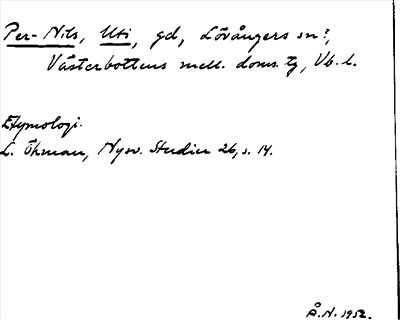 Per-Nils, Uti, gd, Lövångers sn?,
Västerbottens mell. doms. tg, Vb. l.
Etymologi.
L. Öhman, Nysv. Studier 26, s. 14.
Å.N. 1952.